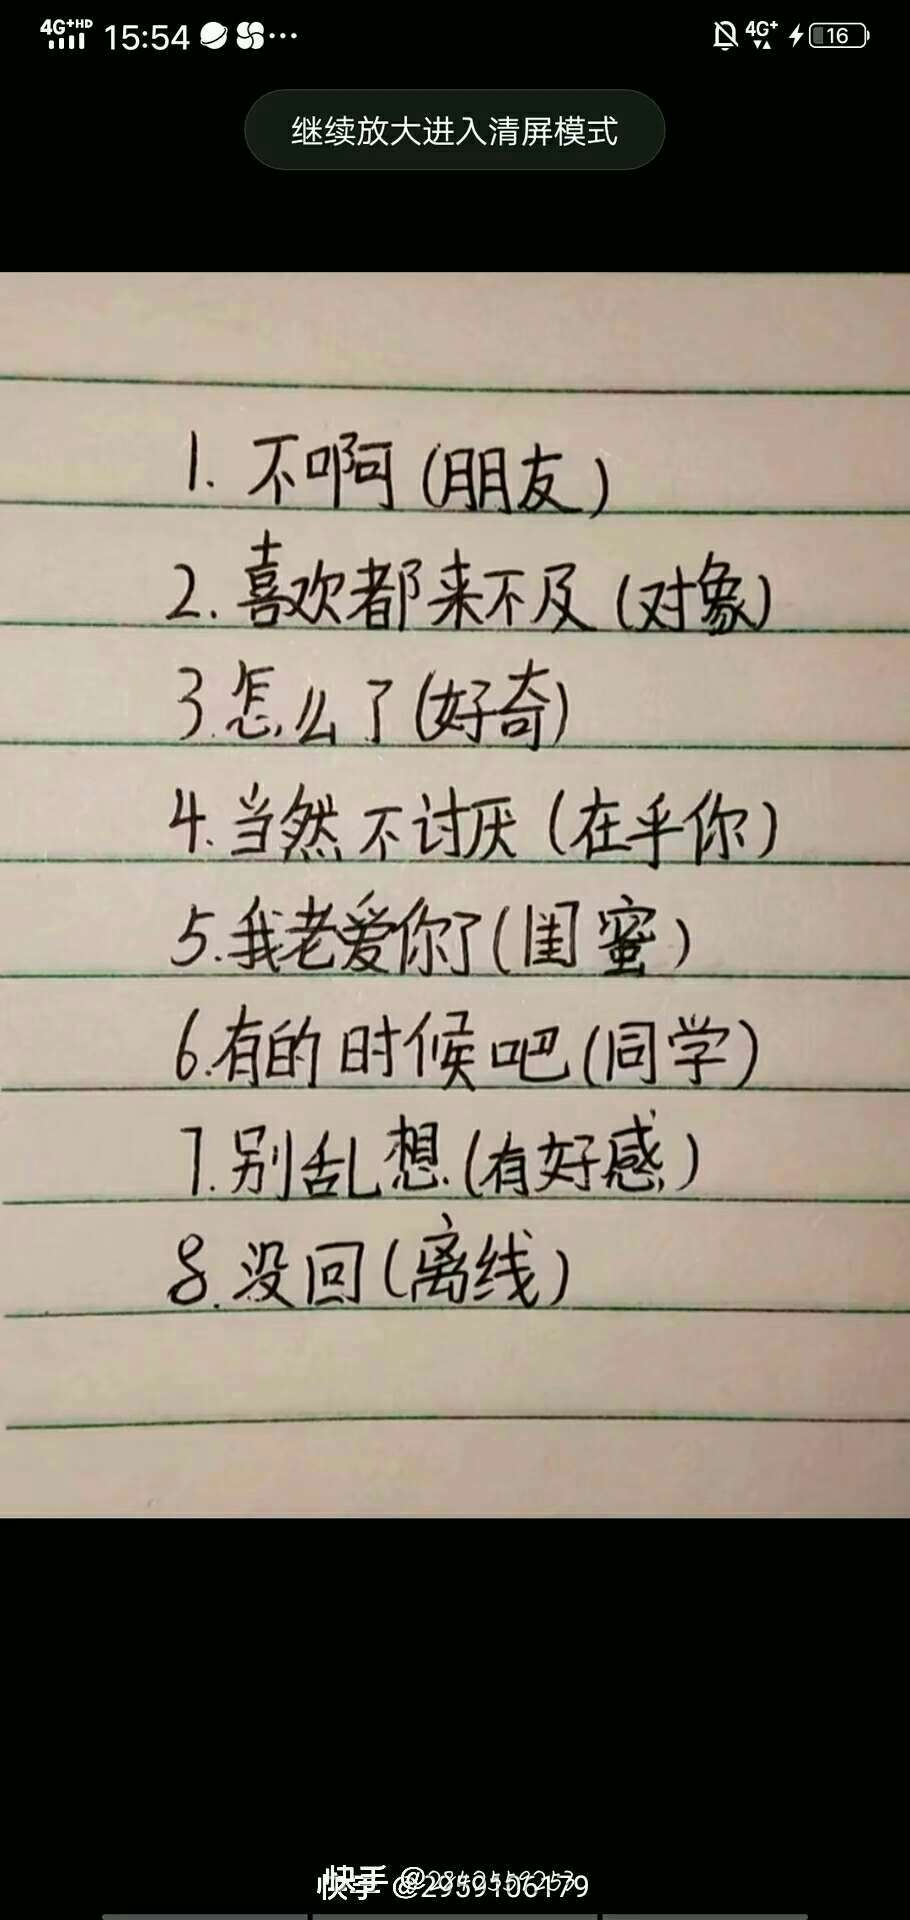 4G+HD 15:54 4G+ 16
继续放大进入清屏模式
1. 不啊(朋友)
2. 喜欢都来不及(对象)
3.怎么了(好奇)
4.当然不讨厌(在乎你)
5.我老爱你了(闺蜜)
6.有的时候吧(同学)
7.别乱想.(有好感)
8.没回(离线)
快手
快手 @2959106179